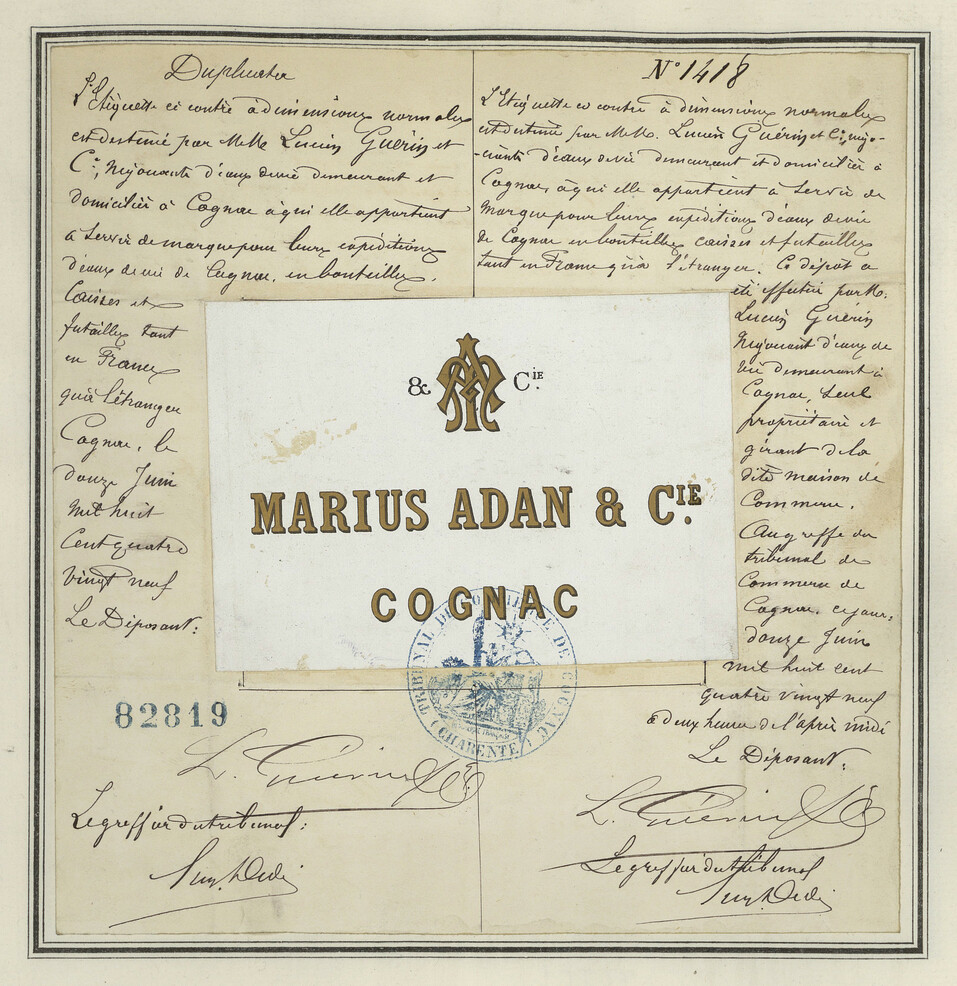 Duplicata
L'Etiquette ci contre à dimensions normales
est destiné par MM. Lucien Guérin et
Cie, Négociants d'eaux de vie demeurant et
domiciliés à Cognac à qui elle appartient
à servir de marque pour leurs expéditions
d'eaux de vie de Cognac, en bouteilles,
Caisses et
futailles tant
en France
qu'à l'étranger
Cognac, le
douze Juin
mil huit
Cent quatre
Vingt neuf
Le Déposant:
82819
L. Guérin & Cie
Le greffier du tribunal:
N° 1418
L'Etiquette ci contre à dimensions normales
est destiné par MM. Lucien Guérin et Cie, négo-
-ciants d'eaux de vie demeurant et domiciliés à
Cognac, à qui elle appartient à servir de
marque pour leurs expéditions d'eaux de vie
de Cognac en bouteilles caisses et futailles
tant en France qu'à l'étranger. Ce dépôt a
été effectué par M.
Lucien Guérin
Négociant d'eaux de
vie demeurant à
Cognac, seul
propriétaire et
gérant de la
dite maison de
Commerce.
Au greffe du
tribunal de
Commerce de
Cognac, ce jour:
douze Juin
mil huit cent
quatre vingt neuf
à deux heures de l'après midi
Le Déposant:
L. Guérin & Cie
Le greffier du tribunal
& CIE.
MARIUS ADAN & CIE.
COGNAC
TRIBUNAL DE COMMERCE DE COGNAC
(CHARENTE)